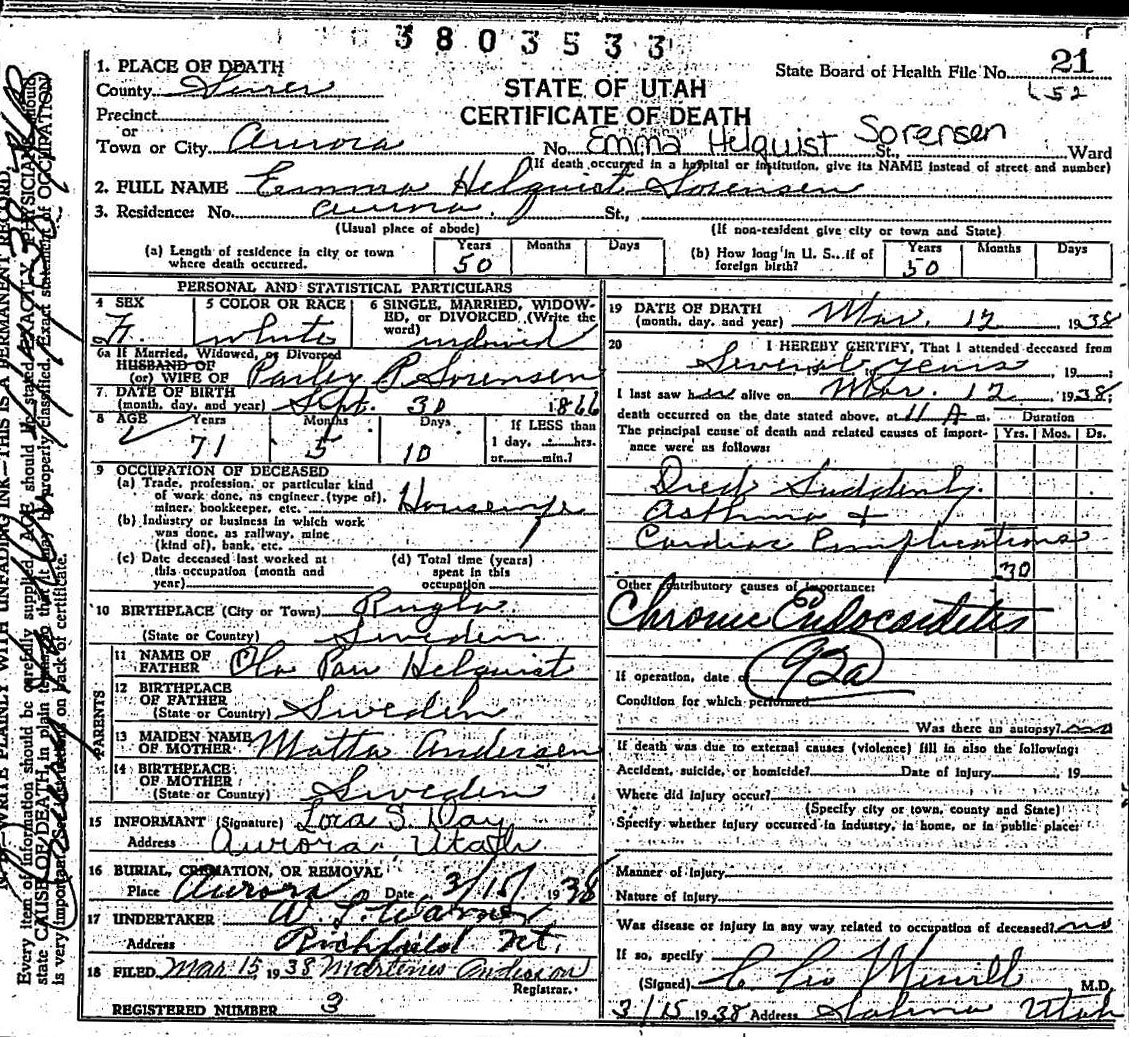 3803533
1. PLACE OF DEATH
County Sevier
Precinct
or
Town or City Aurora
STATE OF UTAH
CERTIFICATE OF DEATH
State Board of Health File No. 21
652
No. Emma Helquist Sorensen St., Ward
(If death occurred in a hospital or institution, give its NAME instead of street and number)
2. FULL NAME Emma Helquist Sorensen
3. Residence: No. Aurora St.,
(Usual place of abode) (If non-resident give city or town and State)
(a) Length of residence in city or town where death occurred. Years 50 Months Days
(b) How long in U. S. if of foreign birth? Years 50 Months Days
PERSONAL AND STATISTICAL PARTICULARS
4 SEX F. 5 COLOR OR RACE White 6 SINGLE, MARRIED, WIDOWED, or DIVORCED (Write the word) widowed
6a If Married, Widowed, or Divorced
HUSBAND OF
(or) WIFE OF Parley P. Sorensen
7 DATE OF BIRTH
(month, day, and year) Sept. 30 1866
8 AGE Years 71 Months 5 Days 10 If LESS than 1 day, hrs. or min.?
9 OCCUPATION OF DECEASED
(a) Trade, profession, or particular kind
of work done, as engineer (type of),
miner, bookkeeper, etc. Housewife
(b) Industry or business in which work
was done, as railway, mine
(kind of), bank, etc.
(c) Date deceased last worked at
this occupation (month and
year)
(d) Total time (years)
spent in this
occupation
10 BIRTHPLACE (City or Town)
(State or Country) Sweden
PARENTS
11 NAME OF
FATHER Ola Helquist
12 BIRTHPLACE
OF FATHER
(State or Country) Sweden
13 MAIDEN NAME
OF MOTHER Matta Andersen
14 BIRTHPLACE
OF MOTHER
(State or Country) Sweden
15 INFORMANT (Signature) Lora S. Day
Address Aurora, Utah
16 BURIAL, CREMATION, OR REMOVAL
Place Aurora Date 3/15/ 1938
17 UNDERTAKER W. L. Warner
Address Richfield Ut.
18 FILED Mar 15 1938 Martenus Anderson
Registrar.
REGISTERED NUMBER 3
19 DATE OF DEATH
(month, day, and year) Mar. 12, 1938
20 I HEREBY CERTIFY, That I attended deceased from
Several years, 19 ;
I last saw her alive on Mar. 12, 1938;
death occurred on the date stated above, at 11 A m. Duration
The principal cause of death and related causes of importance were as follows: Yrs. Mos. Ds.
Died Suddenly.
Asthma +
Cardiac Complications
30
Other contributory causes of importance:
Chronic Endocarditis
92a
If operation, date of
Condition for which performed
Was there an autopsy? no
If death was due to external causes (violence) fill in also the following:
Accident, suicide, or homicide? Date of injury 19
Where did injury occur?
(Specify city or town, county and State)
Specify whether injury occurred in industry, in home, or in public place:
Manner of injury
Nature of injury
Was disease or injury in any way related to occupation of deceased? no
If so, specify
(Signed) C Leo Merrill M.D.
3/15 1938 Address Salina Utah
WRITE PLAINLY WITH UNFADING INK—THIS IS A PERMANENT RECORD.
Every item of information should be carefully supplied. AGE should be stated EXACTLY. PHYSICIANS should
state CAUSE OF DEATH in plain terms, so that it may be properly classified. Exact statement of OCCUPATION
is very important. See instructions on back of certificate.